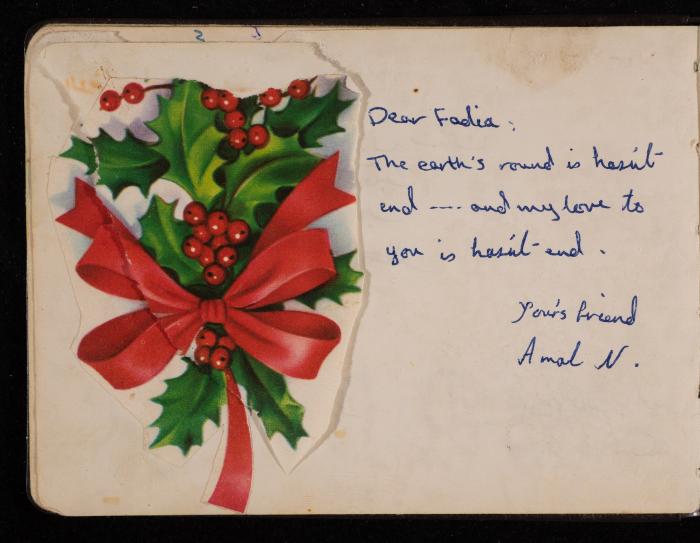 Dear Fadia:
The earth's round is hasn't
end ---- and my love to
you is hasn't end.
Your's friend
Amal N.